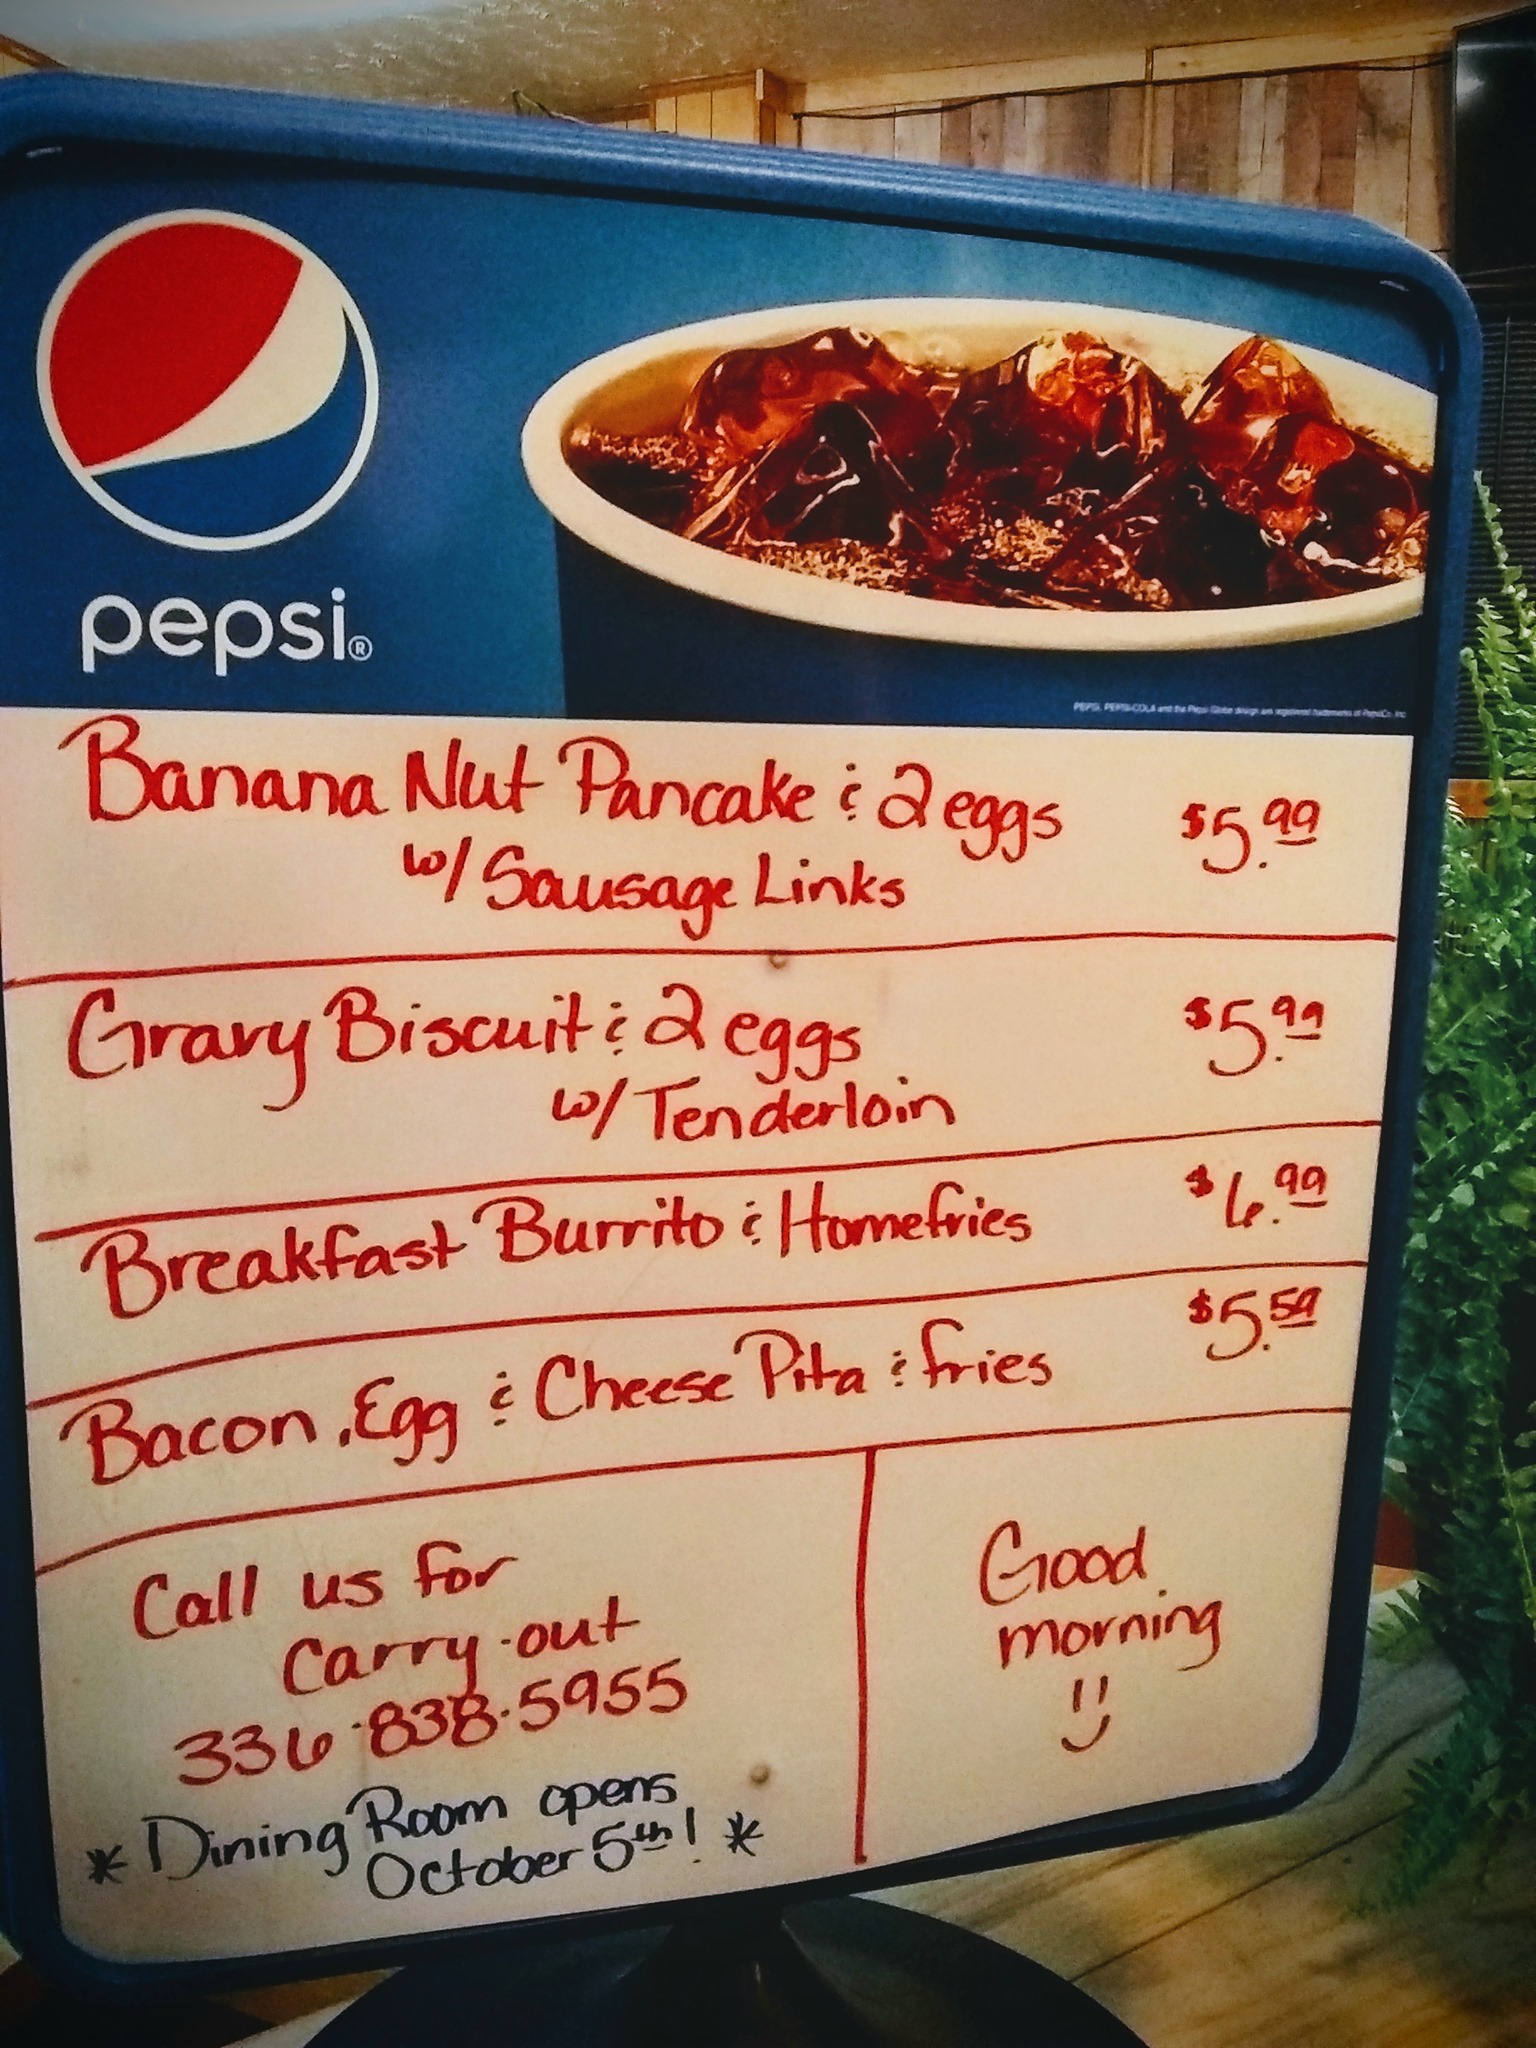 pepsi®
PEPSI, PEPSI-COLA and the Pepsi Globe design are registered trademarks of PepsiCo, Inc.
Banana Nut Pancake & 2 eggs $5.99
w/ Sausage Links
Gravy Biscuit & 2 eggs $5.99
w/ Tenderloin
Breakfast Burrito & Homefries $6.99
Bacon, Egg & Cheese Pita & fries $5.59
Call us for
Carry-out
336-838-5955
* Dining Room opens
October 5th! *
Good
morning